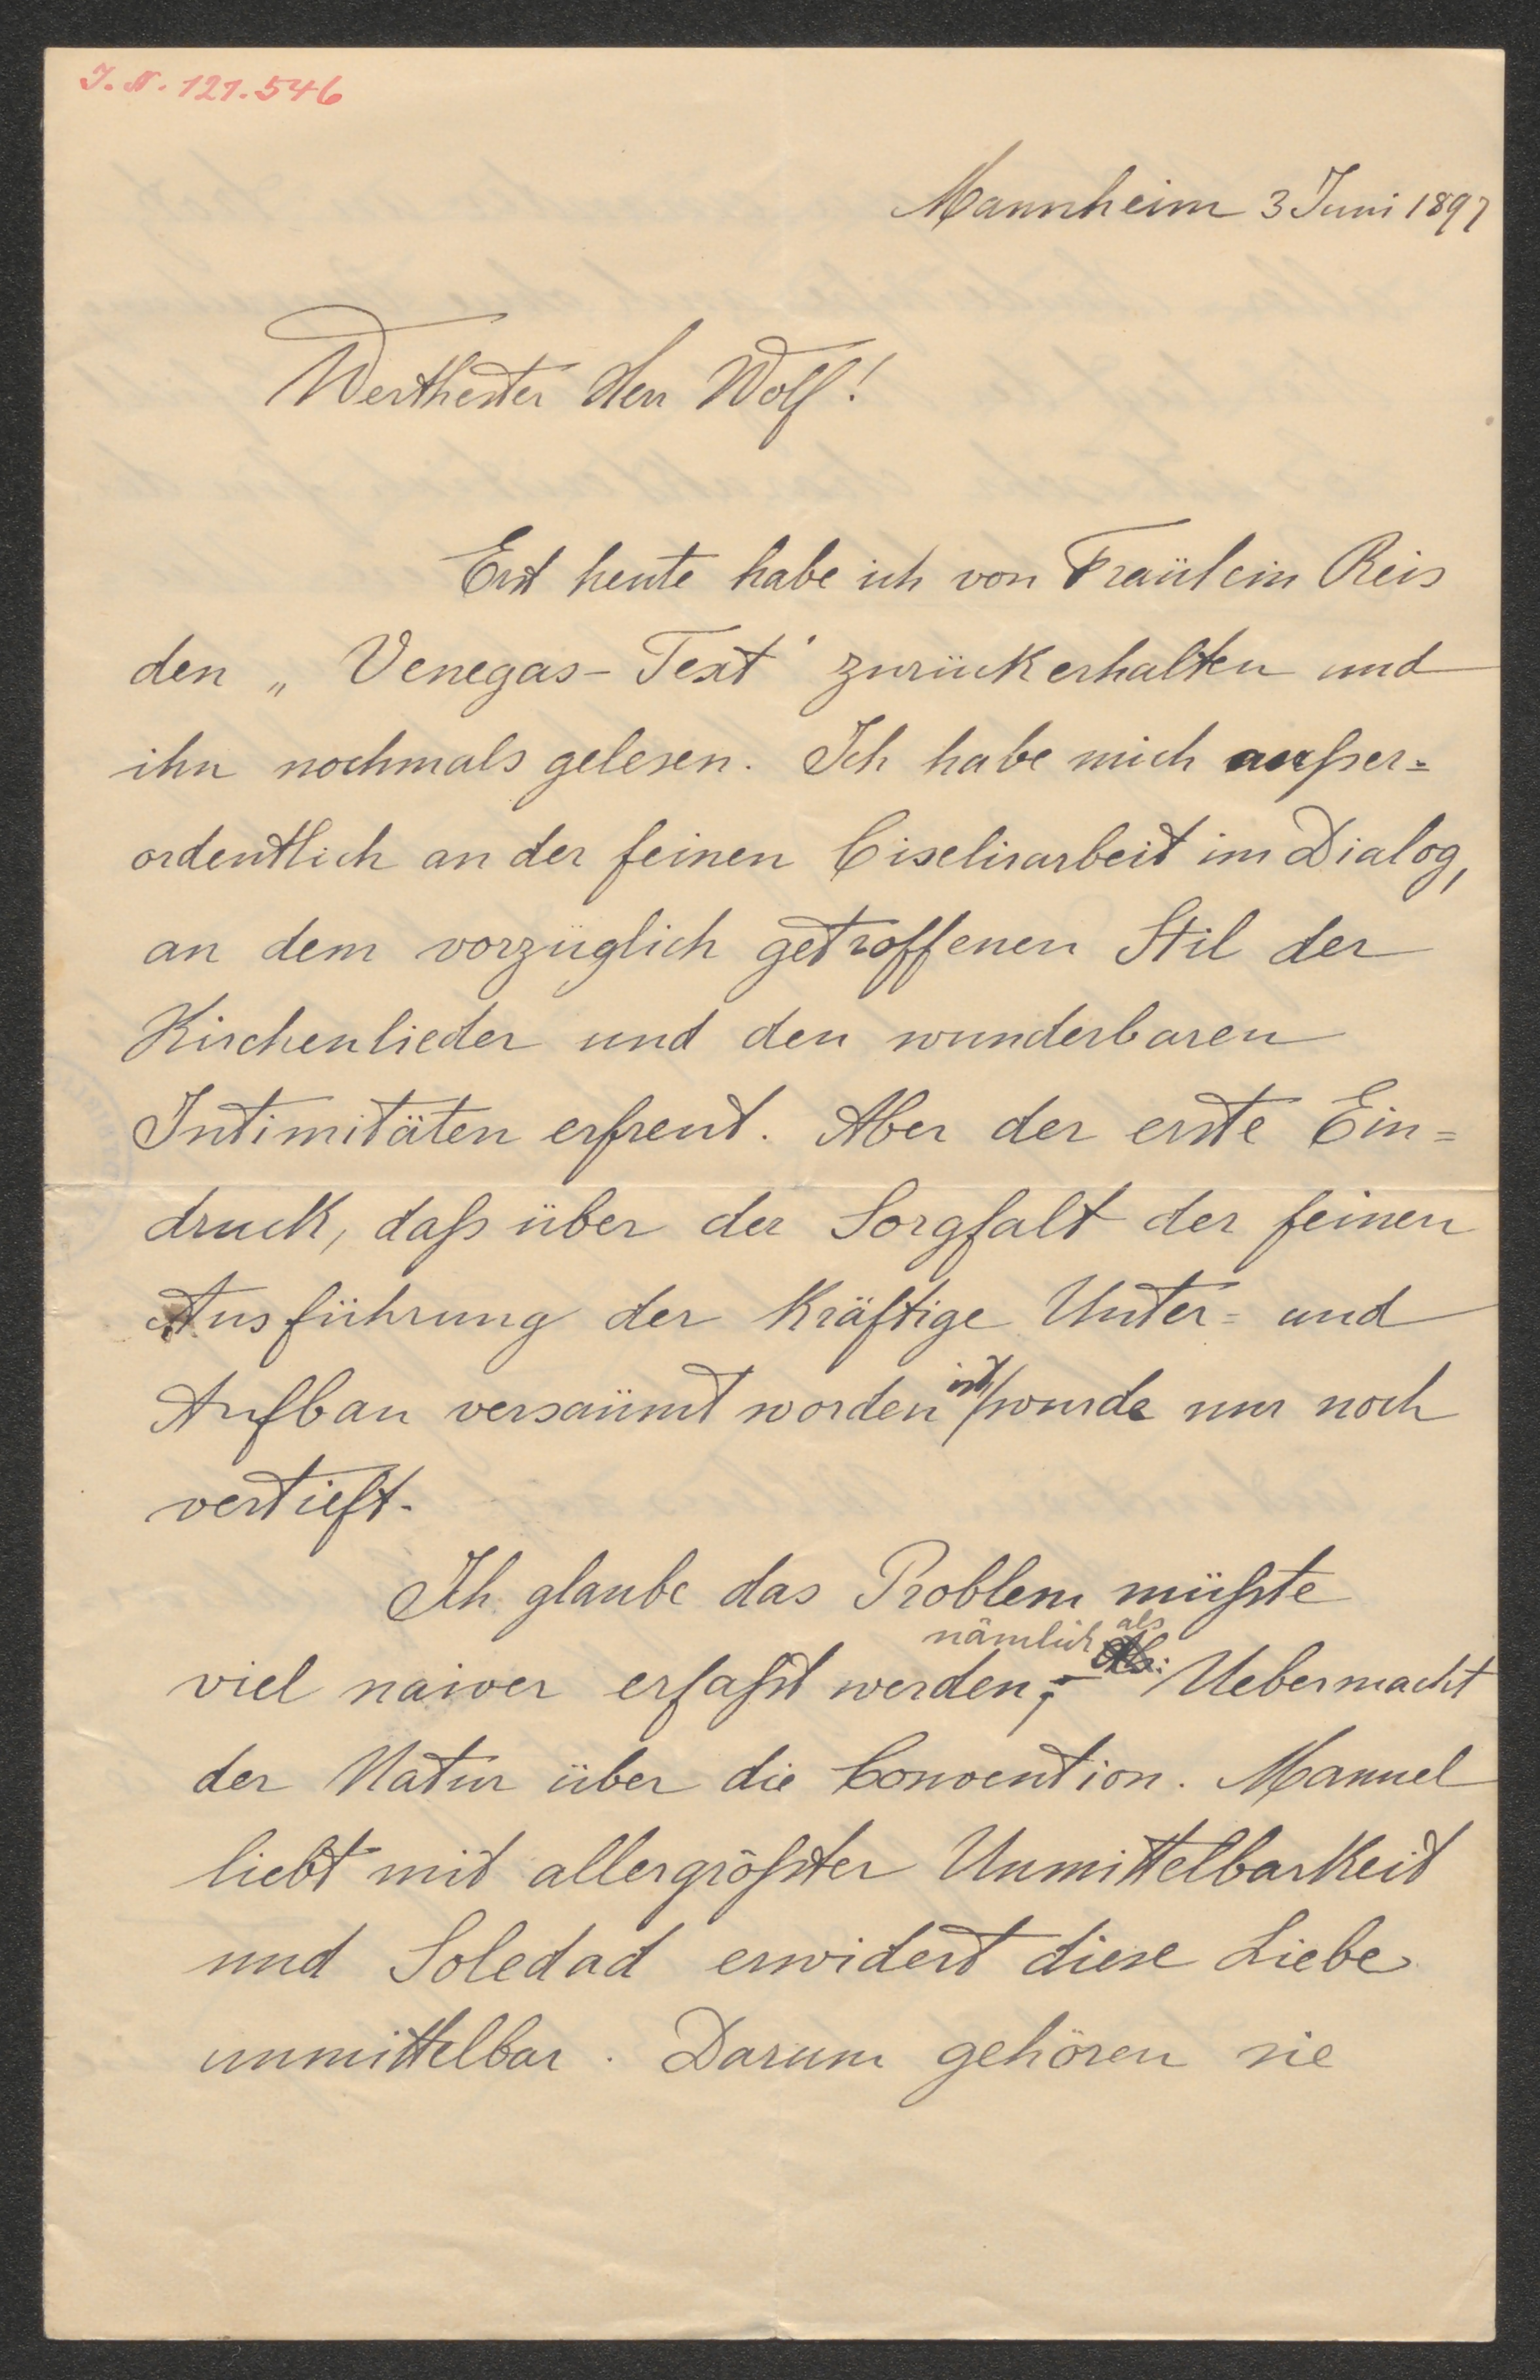 J. N. 121.546
Mannheim 3 Juni 1897
Werthester Herr Wolf!
Erst heute habe ich von Fraülein Reis
den „Venegas-Text" zurückerhalten und
ihn nochmals gelesen. Ich habe mich außer=
ordentlich an der feinen Ciselirarbeit im Dialog,
an dem vorzüglich getroffenen Stil der
Kirchenlieder und den wunderbaren
Intimitäten erfreut. Aber der erste Ein=
druck, daß über der Sorgfalt der feinen
Ausführung der kräftige Unter= und
Aufbau versaümt worden ist, wurde nur noch
vertieft.
Ich glaube das Problem müßte
viel naiver erfaßt werden, nämlich als: Uebermacht
der Natur über die Convention. Manuel
liebt mit allergrößter Unmittelbarkeit
und Soledad erwidert diese Liebe
unmittelbar. Darum gehören sie